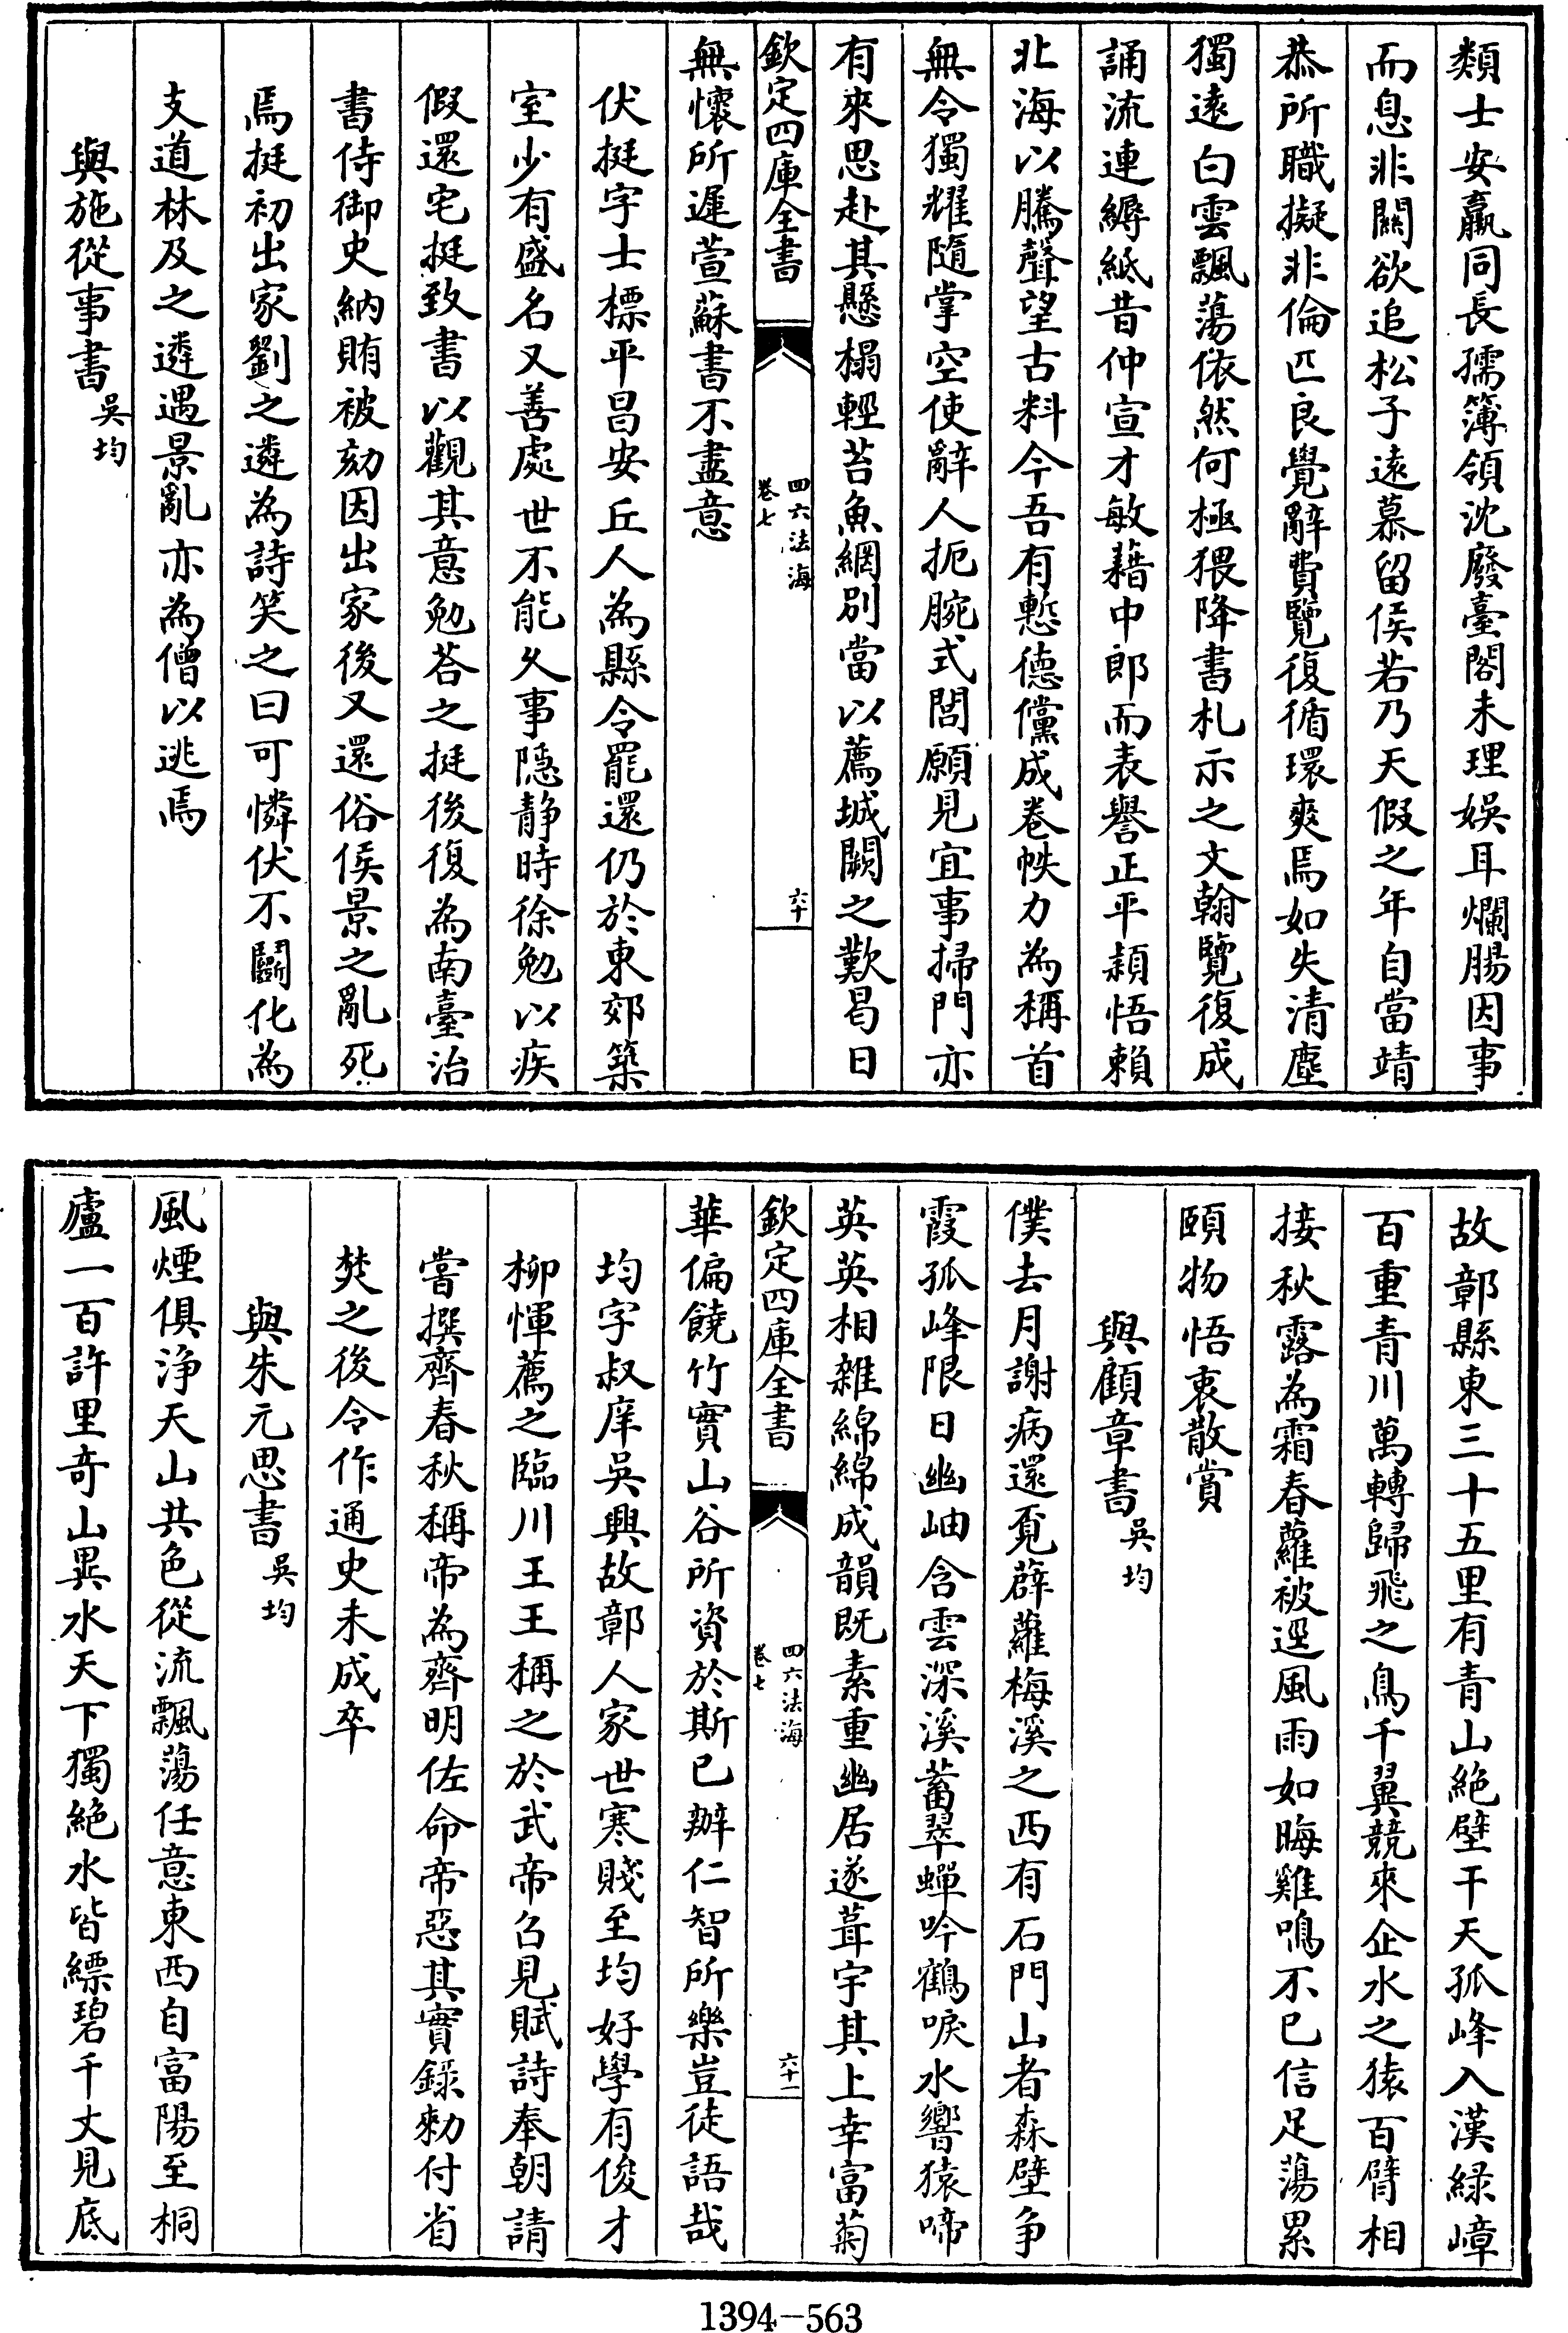 類士安羸同長孺簿領沈廢臺閣未理娛耳爛腸因事
而息非關欲追松子遠慕留侯若乃天假之年自當靖
恭所職擬非倫匹良覺辭費覽復循環爽焉如失清塵
獨遠白雲飄蕩依然何極猥降書札示之文翰覽復成
誦流連縟紙昔仲宣才敏藉中郎而表譽正平穎悟賴
北海以騰聲望古料今吾有慙德儻成卷帙力為稱首
無令獨耀隨掌空使辭人扼腕式閭願見宜事掃門亦
有來思赴其懸榻輕苔魚網別當以薦城闕之歎曷日
欽定四庫全書
四六法海
卷七
六十
無懷所遲萱蘇書不盡意
伏挺字士標平昌安丘人為縣令罷還仍於東郊築
室少有盛名又善處世不能久事隱静時徐勉以疾
假還宅挺致書以觀其意勉荅之挺後復為南臺治
書侍御史納賄被劾因出家後又還俗侯景之亂死
焉挺初出家劉之遴為詩笑之曰可憐伏不鬬化為
支道林及之遴遇景亂亦為僧以逃焉
與施從事書吳均
故鄣縣東三十五里有青山絶壁干天孤峰入漢緑嶂
百重青川萬轉歸飛之鳥千翼競來企水之猿百臂相
接秋露為霜春蘿被逕風雨如晦雞鳴不已信足蕩累
頤物悟衷散賞
與顧章書吳均
僕去月謝病還覔薜蘿梅溪之西有石門山者森壁争
霞孤峰限日幽岫含雲深溪蓄翠蟬吟鶴唳水響猿啼
英英相雜綿綿成韻既素重幽居遂葺宇其上幸富菊
欽定四庫全書
四六法海
卷七
六十一
華偏饒竹實山谷所資於斯已辦仁智所樂豈徒語哉
均字叔庠吳興故鄣人家世寒賤至均好學有俊才
柳惲薦之臨川王王稱之於武帝召見賦詩奉朝請
嘗撰齊春秋稱帝為齊明佐命帝惡其實錄勑付省
焚之後令作通史未成卒
與朱元思書吳均
風煙俱浄天山共色從流飄蕩任意東西自富陽至桐
廬一百許里奇山異水天下獨絶水皆縹碧千丈見底
1394-563